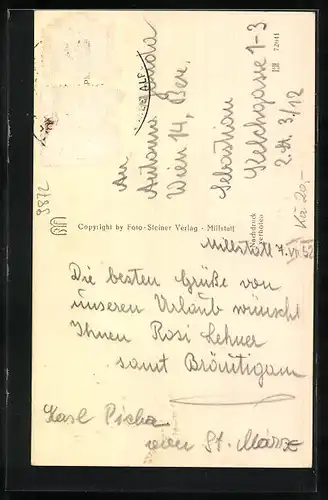 An
Antonia
Wien 14, Bez.
Sebastian
Kelchgasse 1-3
2. St. 3/12
72941
Kä 20,-
9872
Copyright by Foto-Steiner Verlag - Millstatt
Nachdruck
verboten
Millstatt 7. VII 52
Die besten Grüße von
unseren Urlaub wünscht
Ihnen Rosi Lehner
samt Bräutigam
Karl Picha